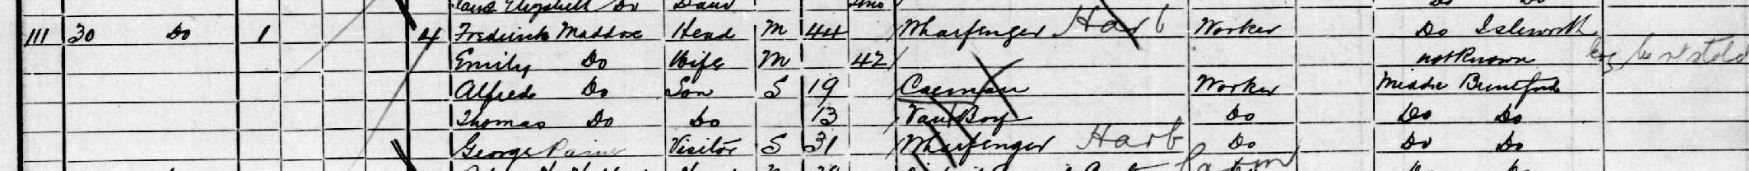 Elizabeth Do Daur
111 30 Do 1 4 Frederick Maddox Head M 44 Wharfinger Harb Worker Do Isleworth
Emily Do Wife M 42 not Known
Alfred Do Son S 19 Carman Worker Middx Brentford
Thomas Do Do 13 Van Boy Do Do Do
George Visitor S 31 Wharfinger Harb Do Do Do